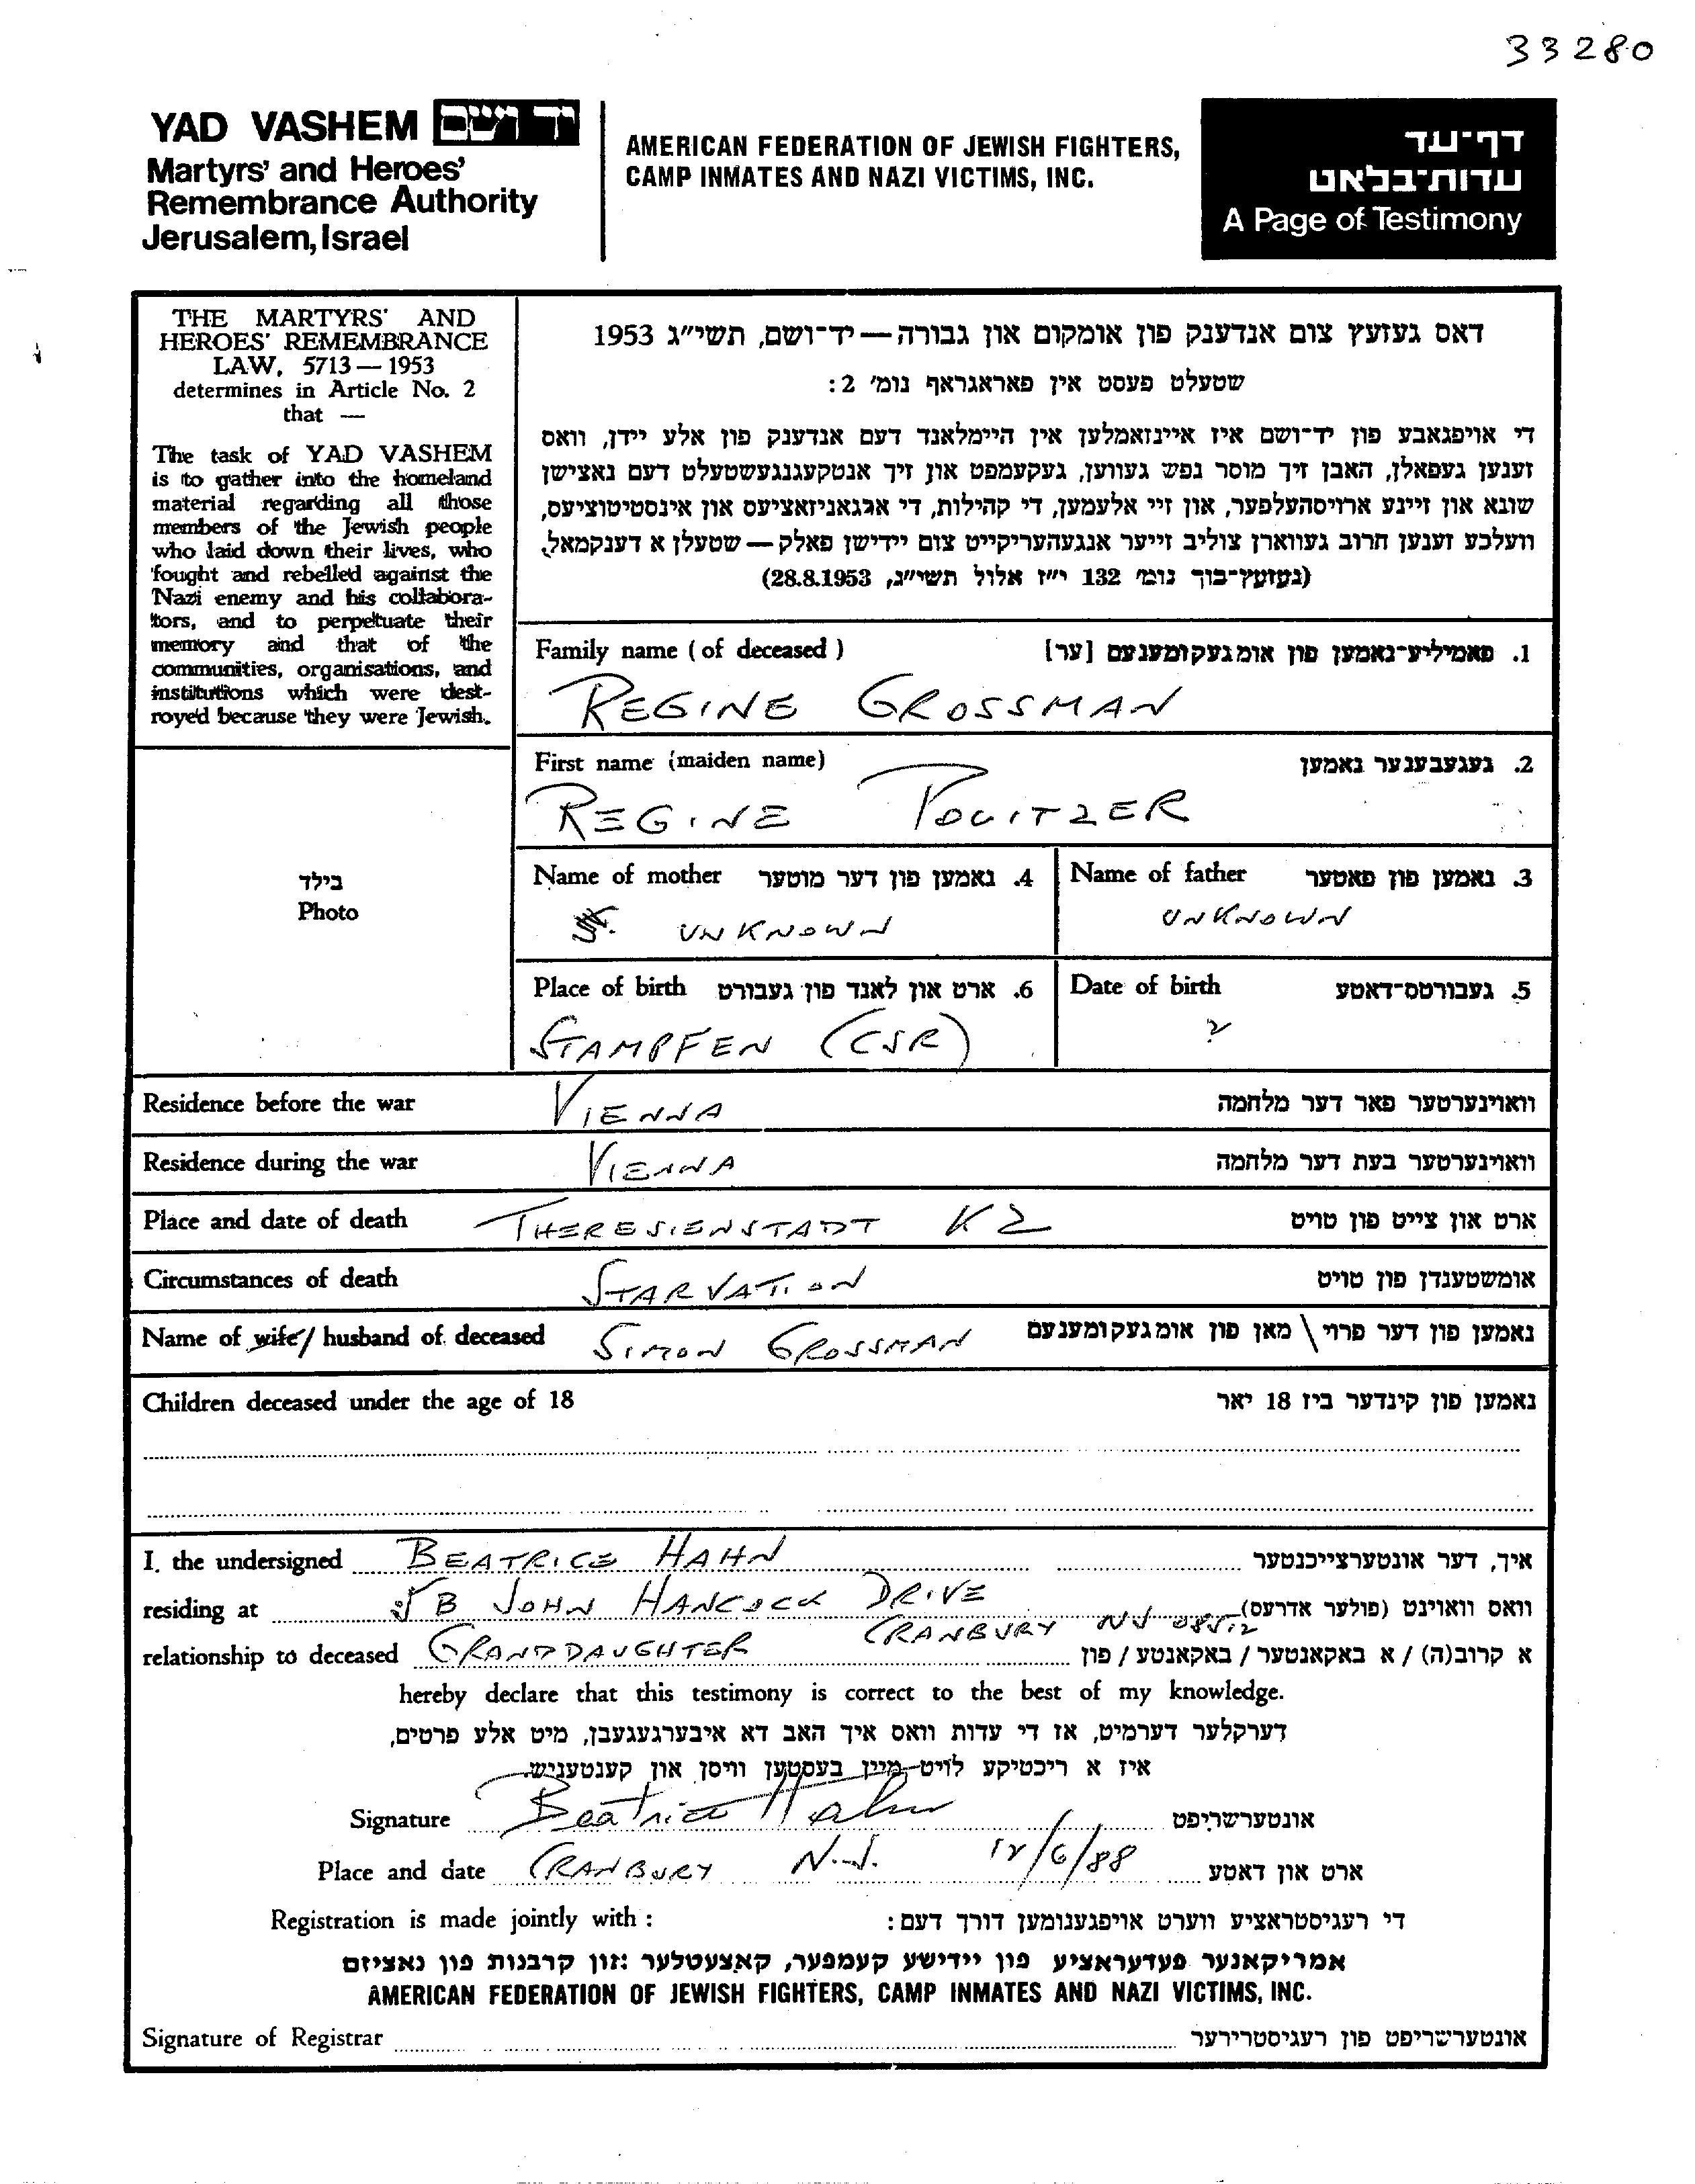 33280
YAD VASHEM יד ושם
Martyrs' and Heroes'
Remembrance Authority
Jerusalem, Israel
AMERICAN FEDERATION OF JEWISH FIGHTERS,
CAMP INMATES AND NAZI VICTIMS, INC.
דף-עד
עדות-בלאט
A Page of Testimony
THE MARTYRS' AND
HEROES' REMEMBRANCE
LAW, 5713 — 1953
determines in Article No. 2
that —
The task of YAD VASHEM
is to gather into the homeland
material regarding all those
members of the Jewish people
who laid down their lives, who
fought and rebelled against the
Nazi enemy and his collabora-
tors, and to perpetuate their
memory and that of the
communities, organisations, and
institutions which were dest-
royed because they were Jewish.
דאס געזעץ צום אנדענק פון אומקום און גבורה — יד-ושם, תשי״ג 1953
שטעלט פעסט אין פאראגראף נומ׳ 2:
די אויפגאבע פון יד-ושם איז איינזאמלען אין היימלאנד דעם אנדענק פון אלע יידן, וואס
זענען געפאלן, האבן זיך מוסר נפש געווען, געקעמפט און זיך אנטקעגנגעשטעלט דעם נאצישן
שונא און זיינע ארויסהעלפער, און זיי אלעמען, די קהילות, די ארגאניזאציעס און אינסטיטוציעס,
וועלכע זענען חרוב געווארן צוליב זייער אנגעהעריקייט צום יידישן פאלק — שטעלן א דענקמאל.
(געזעץ-בוך נומ׳ 132 י״ז אלול תשי״ג, 28.8.1953)
Family name (of deceased) 1. פאמיליע-נאמען פון אומגעקומענעם [ער]
REGINE GROSSMAN
First name (maiden name) 2. געגעבענער נאמען
REGINE POLLITZER
בילד
Photo
Name of mother 4. נאמען פון דער מוטער
UNKNOWN
Name of father 3. נאמען פון פאטער
UNKNOWN
Place of birth 6. ארט און לאנד פון געבורט
STAMPFEN (CSR)
Date of birth 5. געבורטס-דאטע
?
Residence before the war VIENNA וואוינערטער פאר דער מלחמה
Residence during the war VIENNA וואוינערטער בעת דער מלחמה
Place and date of death THERESIENSTADT KZ ארט און צייט פון טויט
Circumstances of death STARVATION אומשטענדן פון טויט
Name of wife / husband of deceased SIMON GROSSMAN נאמען פון דער פרוי \ מאן פון אומגעקומענעם
Children deceased under the age of 18 נאמען פון קינדער ביז 18 יאר
I. the undersigned BEATRICE HAHN איך, דער אונטערצייכנטער
residing at B JOHN HANCOCK DRIVE וואס וואוינט (פולער אדרעס)
CRANBURY NJ 08512
relationship to deceased GRANDDAUGHTER א קרוב(ה) / א באקאנטער / באקאנטע / פון
hereby declare that this testimony is correct to the best of my knowledge.
דערקלער דערמיט, אז די עדות וואס איך האב דא איבערגעגעבן, מיט אלע פרטים,
איז א ריכטיקע לויט מיין בעסטען וויסן און קענטעניש.
Signature Beatrice Hahn אונטערשריפט
Place and date CRANBURY N.J. /6/88 ארט און דאטע
Registration is made jointly with : די רעגיסטראציע ווערט אויפגענומען דורך דעם:
אמריקאנער פעדעראציע פון יידישע קעמפער, קאצעטלער און קרבנות פון נאציזם
AMERICAN FEDERATION OF JEWISH FIGHTERS, CAMP INMATES AND NAZI VICTIMS, INC.
Signature of Registrar אונטערשריפט פון רעגיסטרירער